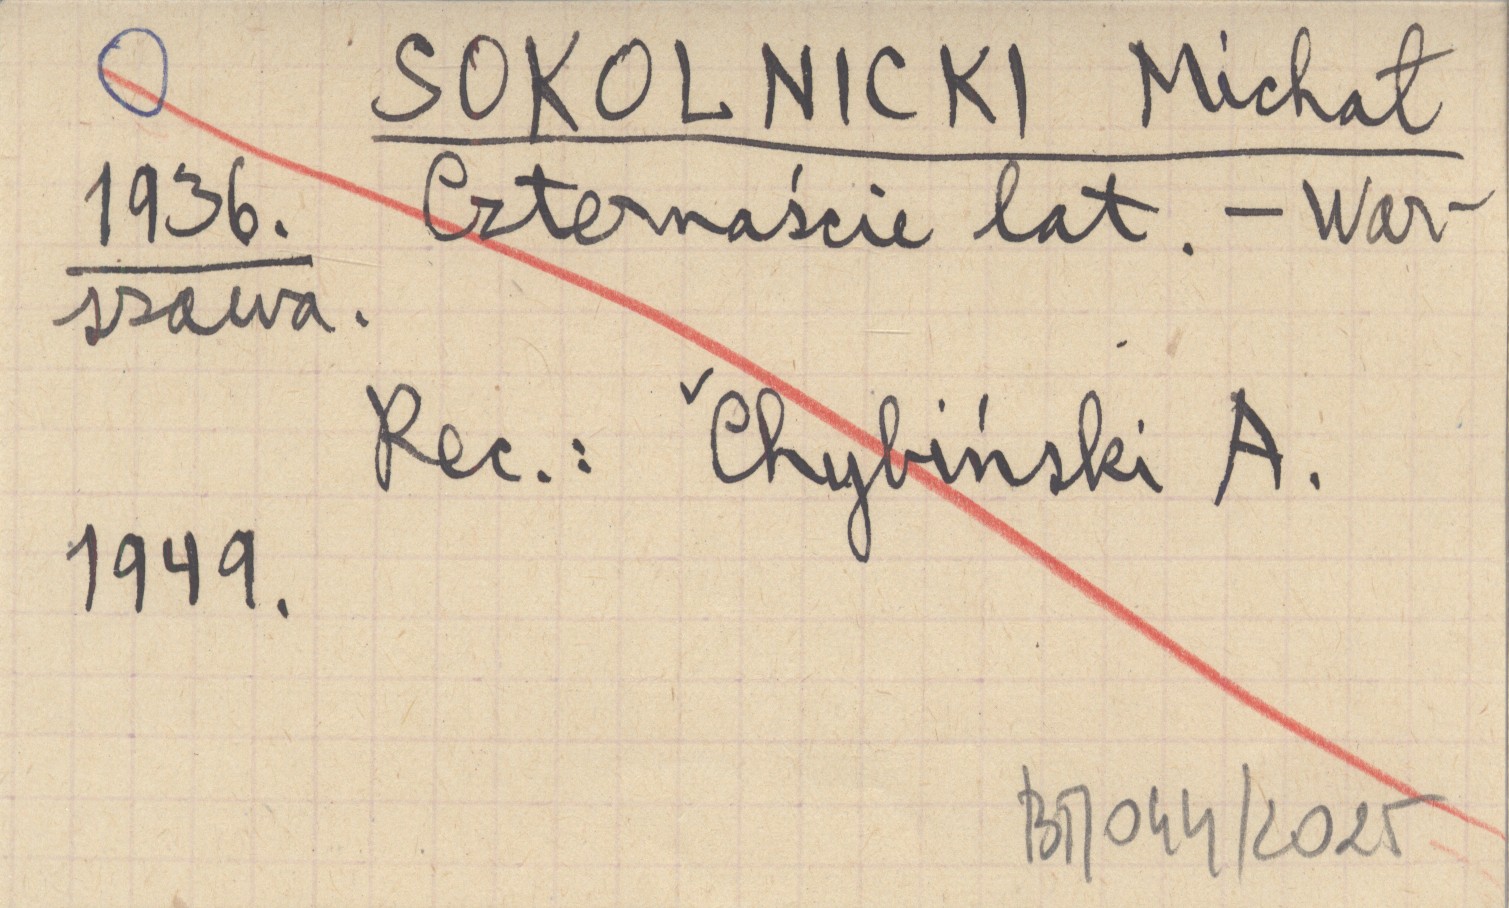 SOKOLNICKI Michał
1936. Czternaście lat. – War-
szawa.
Rec.: ˇChybiński A.
1949.
BT/044/2025